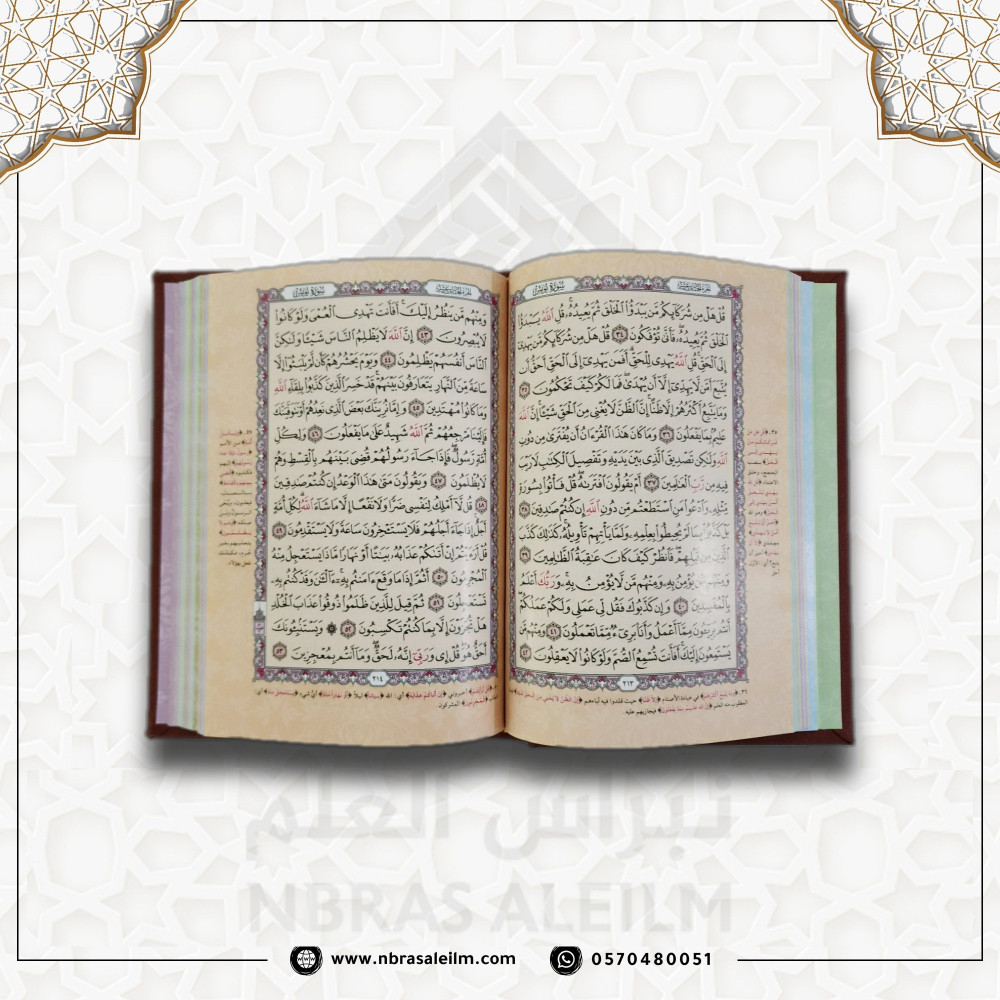 الجزء الحادي عشر
سورة يونس
قُلْ هَلْ مِن شُرَكَآئِكُم مَّن يَبْدَؤُا۟ ٱلْخَلْقَ ثُمَّ يُعِيدُهُۥ ۚ قُلِ ٱللَّهُ يَبْدَؤُا۟
ٱلْخَلْقَ ثُمَّ يُعِيدُهُۥ ۖ فَأَنَّىٰ تُؤْفَكُونَ ٣٤ قُلْ هَلْ مِن شُرَكَآئِكُم مَّن يَهْدِىٓ
إِلَى ٱلْحَقِّ ۚ قُلِ ٱللَّهُ يَهْدِى لِلْحَقِّ ۗ أَفَمَن يَهْدِىٓ إِلَى ٱلْحَقِّ أَحَقُّ أَن
يُتَّبَعَ أَمَّن لَّا يَهِدِّىٓ إِلَّآ أَن يُهْدَىٰ ۖ فَمَا لَكُمْ كَيْفَ تَحْكُمُونَ ٣٥
وَمَا يَتَّبِعُ أَكْثَرُهُمْ إِلَّا ظَنًّا ۚ إِنَّ ٱلظَّنَّ لَا يُغْنِى مِنَ ٱلْحَقِّ شَيْـًٔا ۚ إِنَّ ٱللَّهَ
عَلِيمٌۢ بِمَا يَفْعَلُونَ ٣٦ وَمَا كَانَ هَـٰذَا ٱلْقُرْءَانُ أَن يُفْتَرَىٰ مِن دُونِ
ٱللَّهِ وَلَـٰكِن تَصْدِيقَ ٱلَّذِى بَيْنَ يَدَيْهِ وَتَفْصِيلَ ٱلْكِتَـٰبِ لَا رَيْبَ
فِيهِ مِن رَّبِّ ٱلْعَـٰلَمِينَ ٣٧ أَمْ يَقُولُونَ ٱفْتَرَىٰهُ ۖ قُلْ فَأْتُوا۟ بِسُورَةٍ
مِّثْلِهِۦ وَٱدْعُوا۟ مَنِ ٱسْتَطَعْتُم مِّن دُونِ ٱللَّهِ إِن كُنتُمْ صَـٰدِقِينَ ٣٨
بَلْ كَذَّبُوا۟ بِمَا لَمْ يُحِيطُوا۟ بِعِلْمِهِۦ وَلَمَّا يَأْتِهِمْ تَأْوِيلُهُۥ ۚ كَذَٰلِكَ كَذَّبَ
ٱلَّذِينَ مِن قَبْلِهِمْ ۖ فَٱنظُرْ كَيْفَ كَانَ عَـٰقِبَةُ ٱلظَّـٰلِمِينَ ٣٩
وَمِنْهُم مَّن يُؤْمِنُ بِهِۦ وَمِنْهُم مَّن لَّا يُؤْمِنُ بِهِۦ ۚ وَرَبُّكَ أَعْلَمُ
بِٱلْمُفْسِدِينَ ٤٠ وَإِن كَذَّبُوكَ فَقُل لِّى عَمَلِى وَلَكُمْ عَمَلُكُمْ ۖ
أَنتُم بَرِيٓـُٔونَ مِمَّآ أَعْمَلُ وَأَنَا۠ بَرِىٓءٌ مِّمَّا تَعْمَلُونَ ٤١ وَمِنْهُم مَّن
يَسْتَمِعُونَ إِلَيْكَ ۚ أَفَأَنتَ تُسْمِعُ ٱلصُّمَّ وَلَوْ كَانُوا۟ لَا يَعْقِلُونَ ٤٢
٢١٣
الجزء الحادي عشر
سورة يونس
وَمِنْهُم مَّن يَنظُرُ إِلَيْكَ ۚ أَفَأَنتَ تَهْدِى ٱلْعُمْىَ وَلَوْ كَانُوا۟
لَا يُبْصِرُونَ ٤٣ إِنَّ ٱللَّهَ لَا يَظْلِمُ ٱلنَّاسَ شَيْـًٔا وَلَـٰكِنَّ
ٱلنَّاسَ أَنفُسَهُمْ يَظْلِمُونَ ٤٤ وَيَوْمَ يَحْشُرُهُمْ كَأَن لَّمْ يَلْبَثُوٓا۟ إِلَّا
سَاعَةً مِّنَ ٱلنَّهَارِ يَتَعَارَفُونَ بَيْنَهُمْ ۚ قَدْ خَسِرَ ٱلَّذِينَ كَذَّبُوا۟ بِلِقَآءِ ٱللَّهِ
وَمَا كَانُوا۟ مُهْتَدِينَ ٤٥ وَإِمَّا نُرِيَنَّكَ بَعْضَ ٱلَّذِى نَعِدُهُمْ أَوْ نَتَوَفَّيَنَّكَ
فَإِلَيْنَا مَرْجِعُهُمْ ثُمَّ ٱللَّهُ شَهِيدٌ عَلَىٰ مَا يَفْعَلُونَ ٤٦ وَلِكُلِّ
أُمَّةٍ رَّسُولٌ ۖ فَإِذَا جَآءَ رَسُولُهُمْ قُضِىَ بَيْنَهُم بِٱلْقِسْطِ وَهُمْ
لَا يُظْلَمُونَ ٤٧ وَيَقُولُونَ مَتَىٰ هَـٰذَا ٱلْوَعْدُ إِن كُنتُمْ صَـٰدِقِينَ
٤٨ قُل لَّآ أَمْلِكُ لِنَفْسِى ضَرًّا وَلَا نَفْعًا إِلَّا مَا شَآءَ ٱللَّهُ ۗ لِكُلِّ أُمَّةٍ
أَجَلٌ ۚ إِذَا جَآءَ أَجَلُهُمْ فَلَا يَسْتَـْٔخِرُونَ سَاعَةً ۖ وَلَا يَسْتَقْدِمُونَ ٤٩
قُلْ أَرَءَيْتُمْ إِنْ أَتَىٰكُمْ عَذَابُهُۥ بَيَـٰتًا أَوْ نَهَارًا مَّاذَا يَسْتَعْجِلُ مِنْهُ
ٱلْمُجْرِمُونَ ٥٠ أَثُمَّ إِذَا مَا وَقَعَ ءَامَنتُم بِهِۦٓ ۚ ءَآلْـَٔـٰنَ وَقَدْ كُنتُم بِهِۦ
تَسْتَعْجِلُونَ ٥١ ثُمَّ قِيلَ لِلَّذِينَ ظَلَمُوا۟ ذُوقُوا۟ عَذَابَ ٱلْخُلْدِ
هَلْ تُجْزَوْنَ إِلَّا بِمَا كُنتُمْ تَكْسِبُونَ ٥٢ ۞ وَيَسْتَنۢبِـُٔونَكَ
أَحَقٌّ هُوَ ۖ قُلْ إِى وَرَبِّىٓ إِنَّهُۥ لَحَقٌّ ۖ وَمَآ أَنتُم بِمُعْجِزِينَ ٥٣
٢١٤
نبراس العلم
NBRAS ALEILM
www.nbrasaleilm.com
0570480051